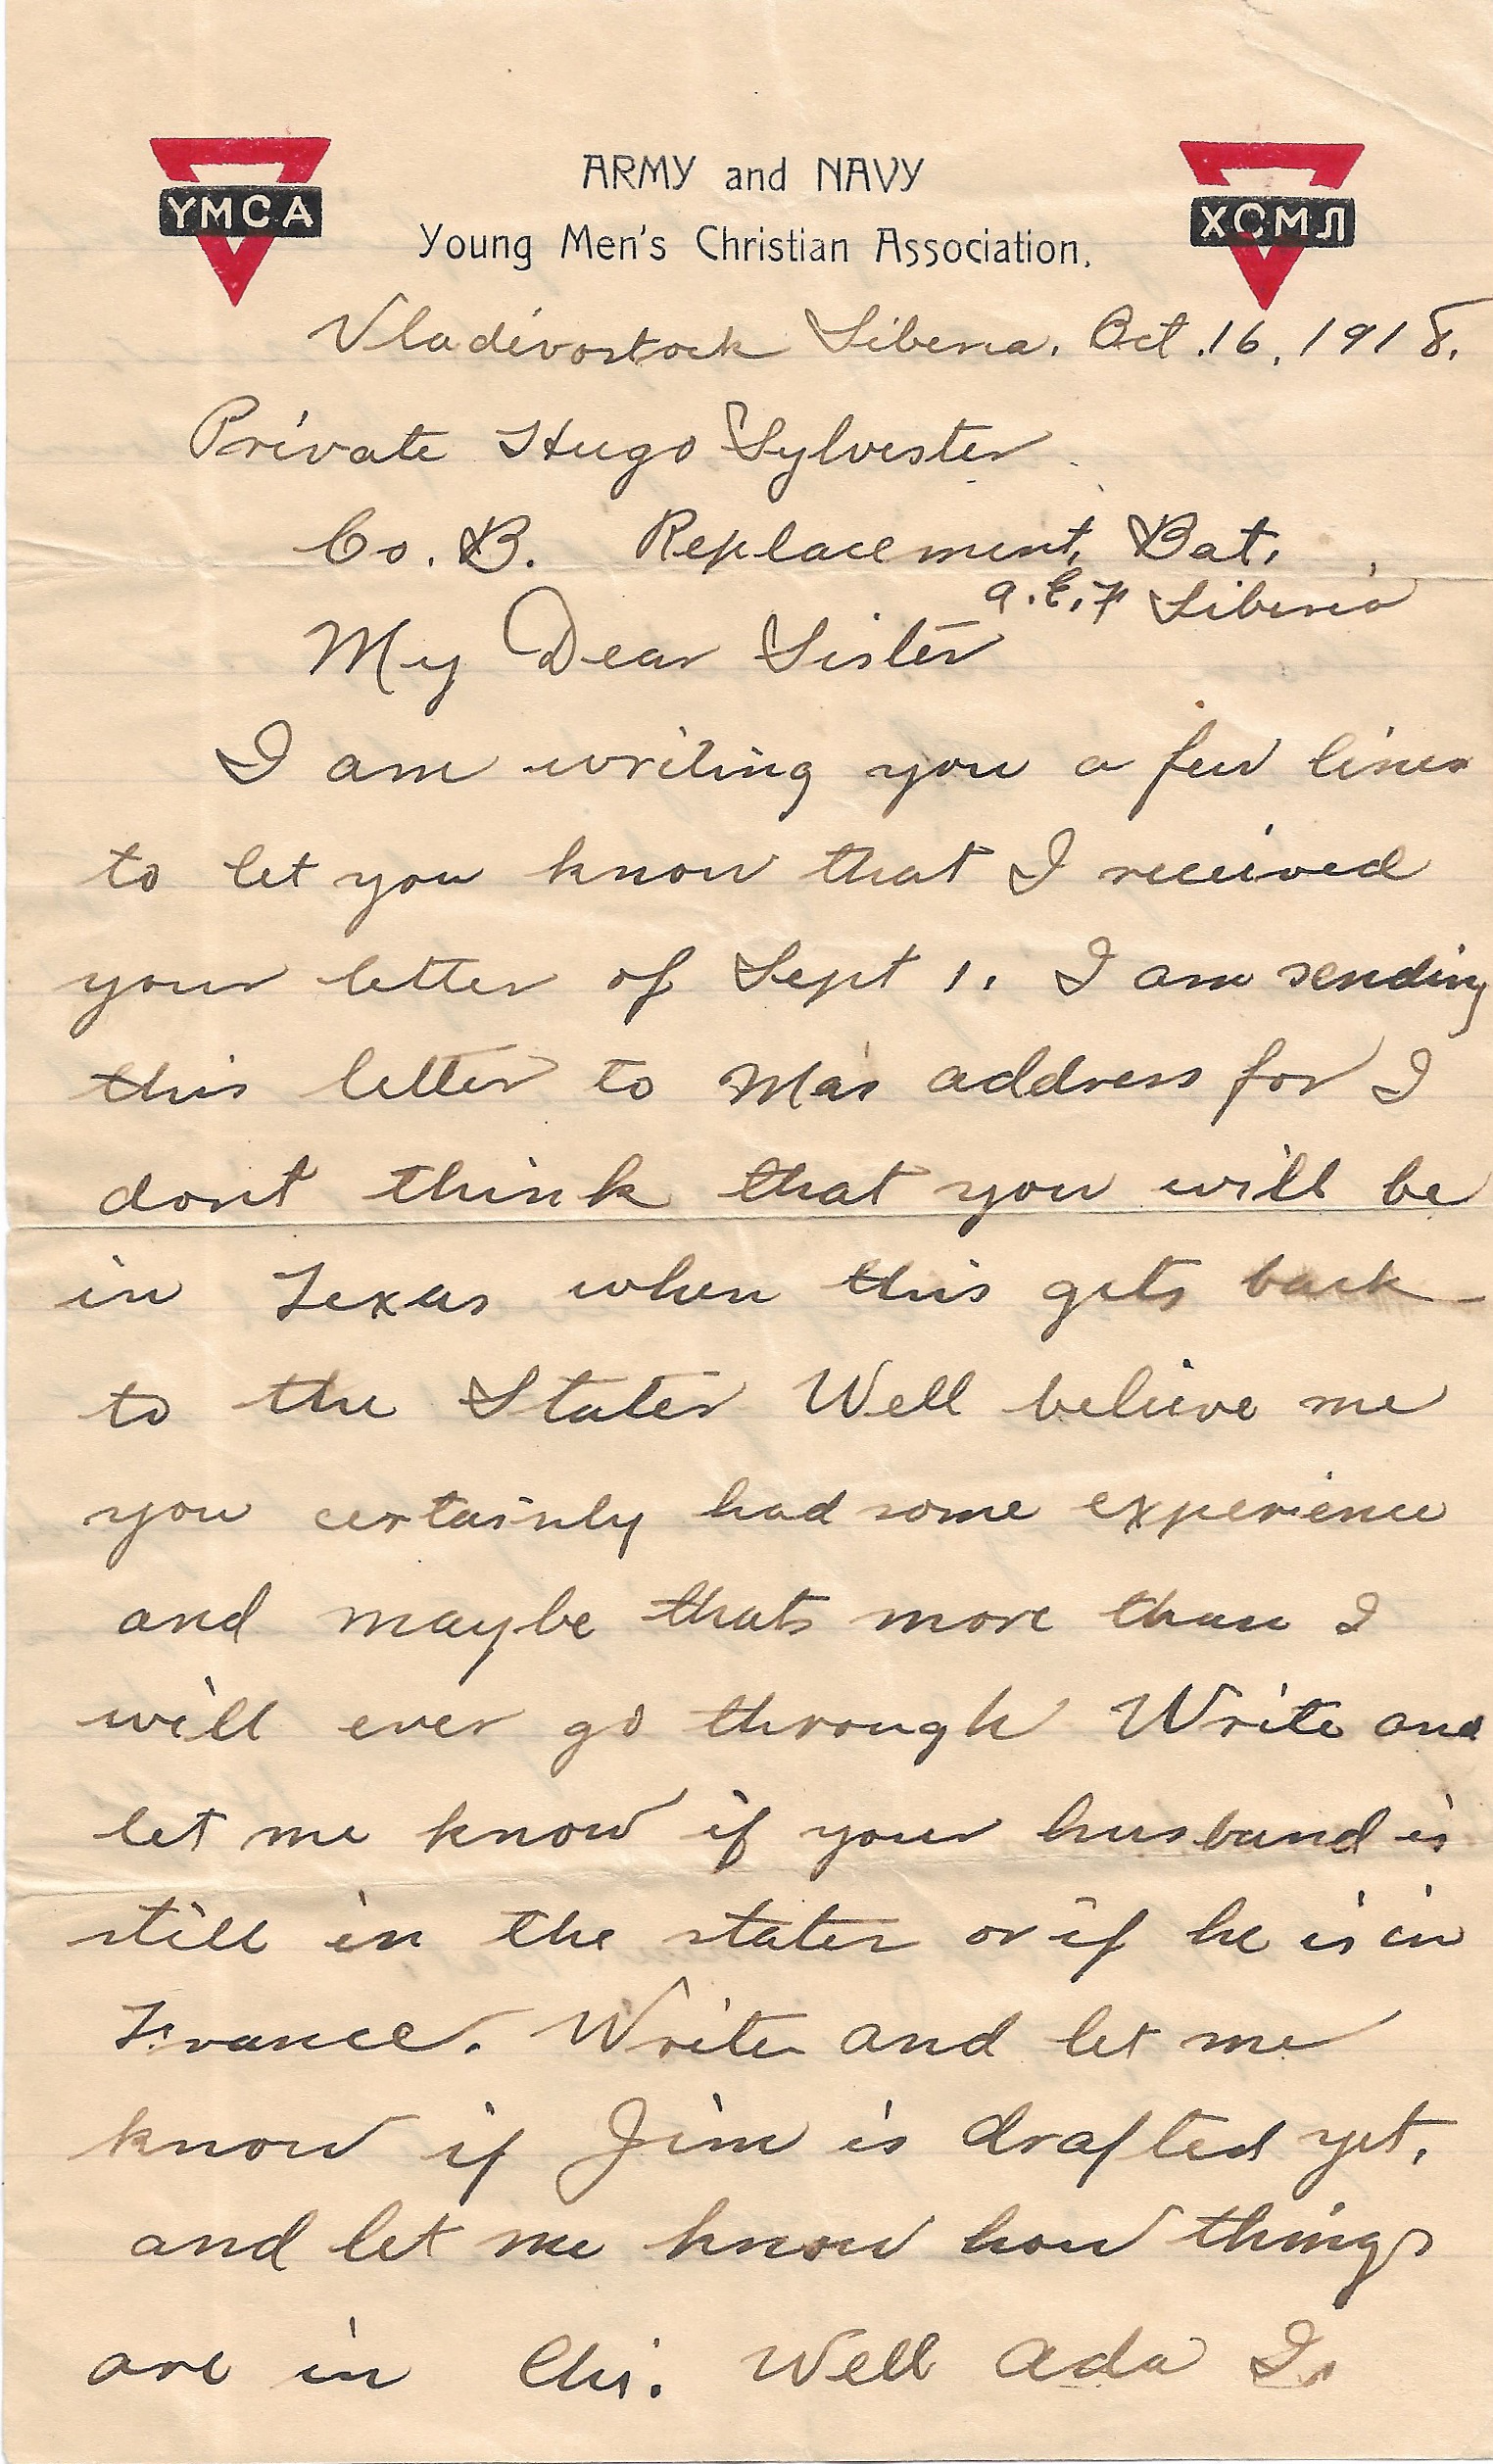 YMCA
ARMY and NAVY
ХСМЛ
Young Men's Christian Association.
Vladivostock Siberia. Oct. 16, 1918.
Private Hugo Sylvester
Co. B. Replacement, Bat.
A.E.F Siberia
My Dear Sister
I am writing you a few lines
to let you know that I received
your letter of Sept 1. I am sending
this letter to Ma's address for I
dont think that you will be
in Texas when this gets back
to the States Well believe me
you certainly had some experience
and maybe thats more than I
will ever go through Write and
let me know if your husband is
still in the states or if he is in
France. Write and let me
know if Jim is drafted yet,
and let me know how things
are in Chi. Well Ada I